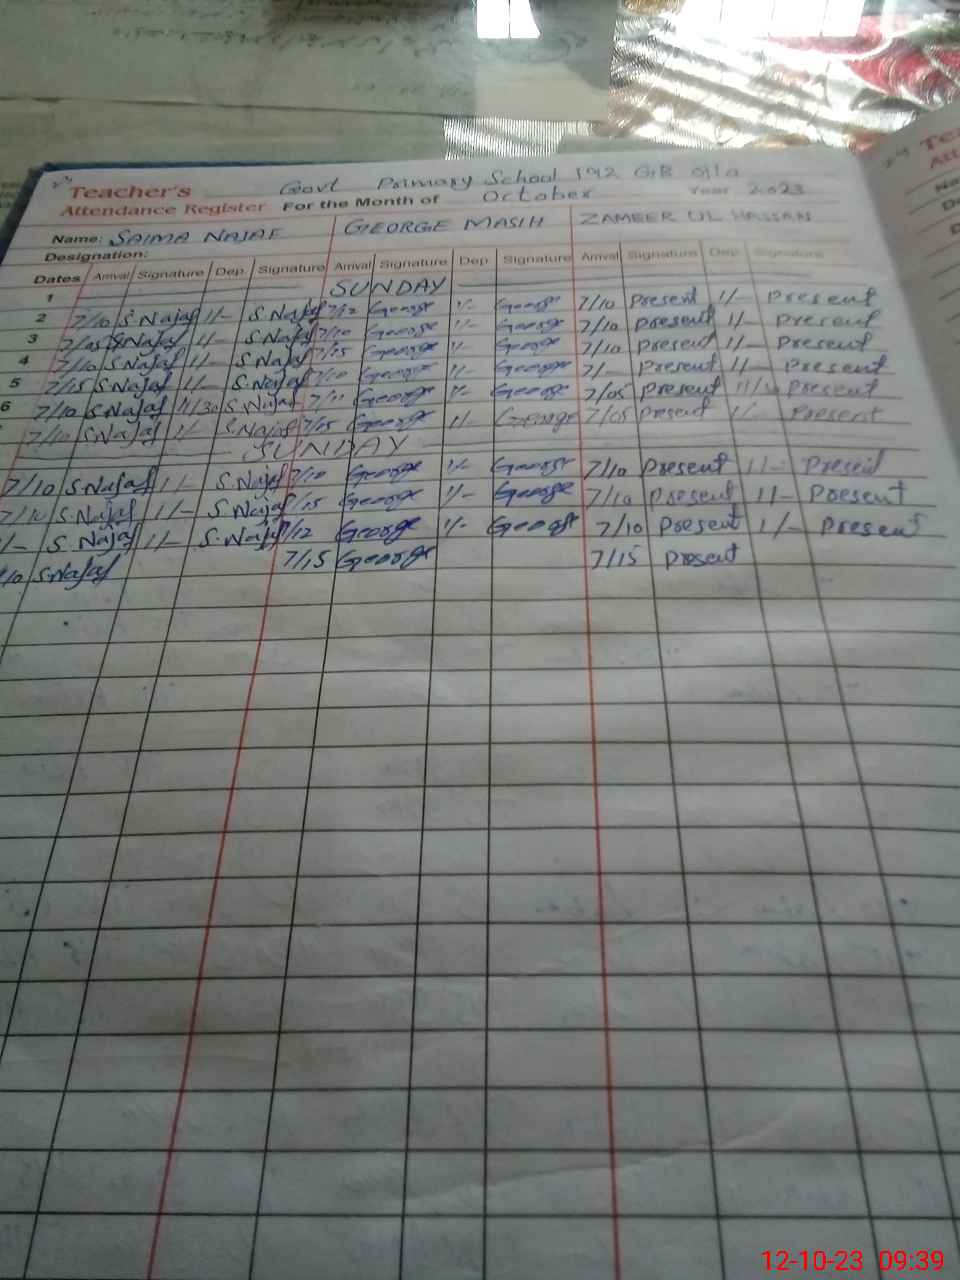 Teacher's Govt Primary School 192 GB
Attendance Register For the Month of October Year 2023
Name: SAIMA NAJAF GEORGE MASIH ZAMEER UL HASSAN
Designation:
Dates Arrival Signature Dep. Signature Arrival Signature Dep. Signature Arrival Signature Dep. Signature
1 SUNDAY
2 7/10 S.Najaf 1/- S.Najaf 7/12 George 1/- George 7/10 Present 1/- Present
3 7/05 S.Najaf 1/- S.Najaf 7/10 George 1/- George 7/10 Present 1/- Present
4 7/10 S.Najaf 1/- S.Najaf 7/15 George 1/- George 7/10 Present 1/- Present
5 7/15 S.Najaf 1/- S.Najaf George 1/- George 7/- Present 1/- Present
6 7/10 S.Najaf 11/30 S.Najaf George 1/- George 7/05 Present Present
7/10 S.Najaf 1/- S.Najaf 7/15 George 1/- George 7/05 Present 1/- Present
SUNDAY
7/10 S.Najaf 1/- S.Najaf 7/10 George 1/- George 7/10 Present 1/- Present
7/10 S.Najaf 1/- S.Najaf /15 George 1/- George 7/10 Present 1/- Present
/- S.Najaf 1/- S.Najaf 7/12 George 1/- George 7/10 Present 1/- Present
/10 S.Najaf 7/15 George 7/15 Present
12-10-23 09:39